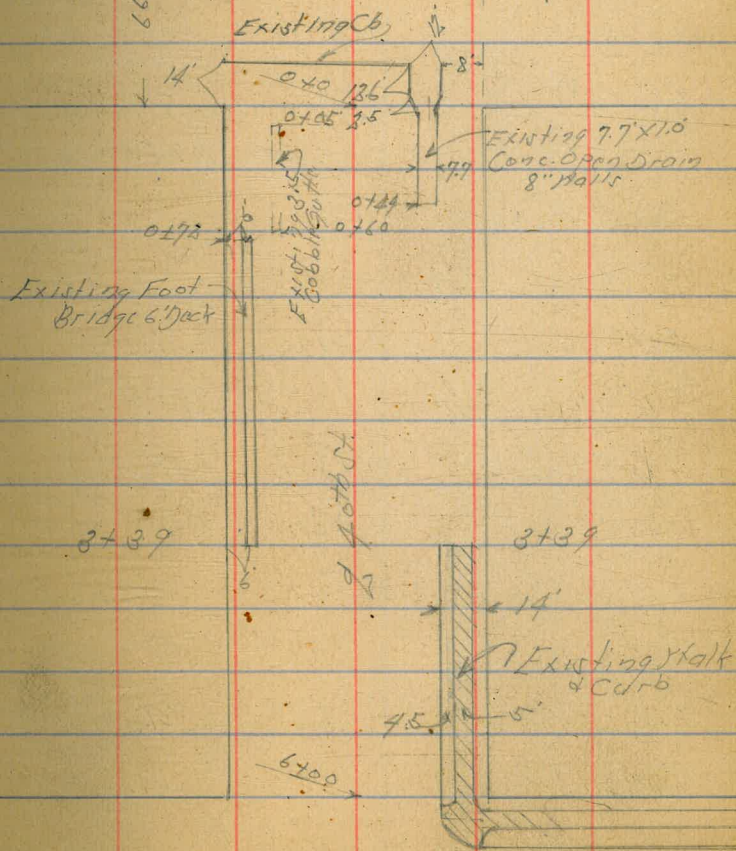 66
Existing Cb
14'
8'
0+0 13.6
0+05 2.5
Existing 7.7' X 1.0'
Conc. Open Drain
8" Walls
7.7
0+49
0+60
Existing 3.5
Cobble Gutter
5'
0+72
Existing Foot
Bridge 6' Deck
3+39
3+39
40th St
6
14'
Existing Walk
& Curb
4.5
5'
6+00